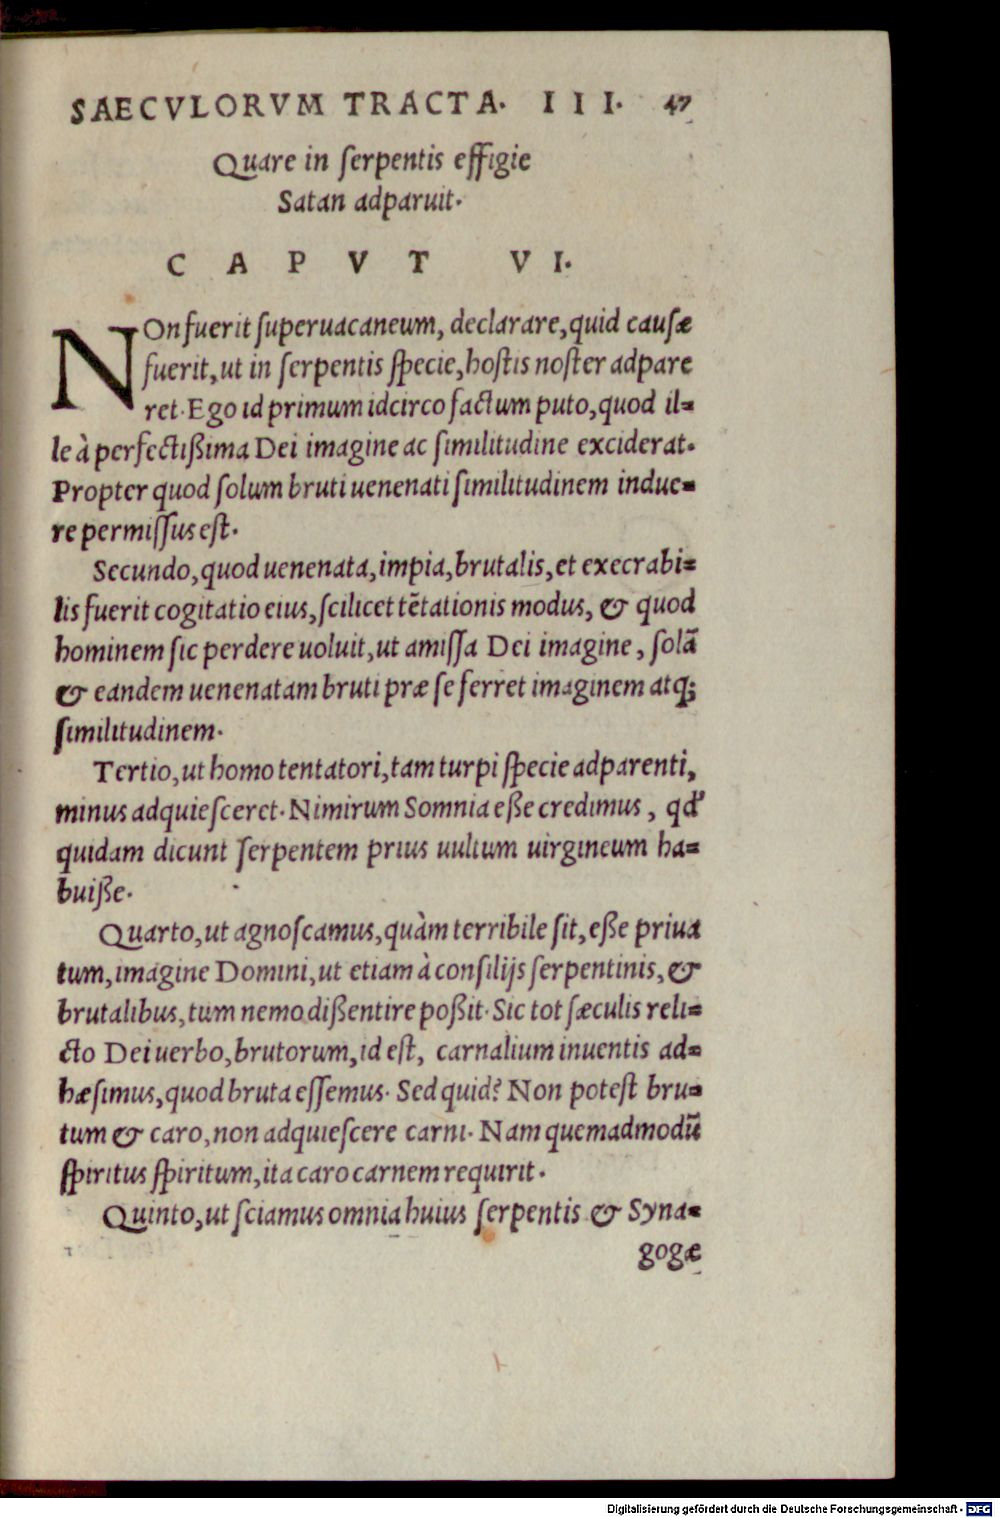 SAECVLORVM TRACTA. III. 47
Quare in ſerpentis effigie
Satan adparuit.
CAPVT VI.
NOn fuerit ſuperuacaneum, declarare, quid cauſæ
fuerit, ut in ſerpentis ſpecie, hoſtis noſter adpare
ret. Ego id primum idcirco factum puto, quod il=
le à perfectißima Dei imagine ac ſimilitudine exciderat.
Propter quod ſolum bruti uenenati ſimilitudinem indue=
re permiſſus eſt.
Secundo, quod uenenata, impia, brutalis, et execrabi=
lis fuerit cogitatio eius, ſcilicet tẽtationis modus, & quod
hominem ſic perdere uoluit, ut amiſſa Dei imagine, ſolã
& eandem uenenatam bruti præ ſe ferret imaginem atq;
ſimilitudinem.
Tertio, ut homo tentatori, tam turpi ſpecie adparenti,
minus adquieſceret. Nimirum Somnia eße credimus, qd'
quidam dicunt ſerpentem prius uultum uirgineum ha=
buiße.
Quarto, ut agnoſcamus, quàm terribile ſit, eße priua
tum, imagine Domini, ut etiam à conſilijs ſerpentinis, &
brutalibus, tum nemo dißentire poßit. Sic tot ſæculis reli=
cto Dei uerbo, brutorum, id eſt, carnalium inuentis ad=
hæſimus, quod bruta eſſemus. Sed quid? Non poteſt bru=
tum & caro, non adquieſcere carni. Nam quemadmodũ
ſpiritus ſpiritum, ita caro carnem requirit.
Quinto, ut ſciamus omnia huius ſerpentis & Syna=
gogæ
Digitalisierung gefördert durch die Deutsche Forschungsgemeinschaft - DFG